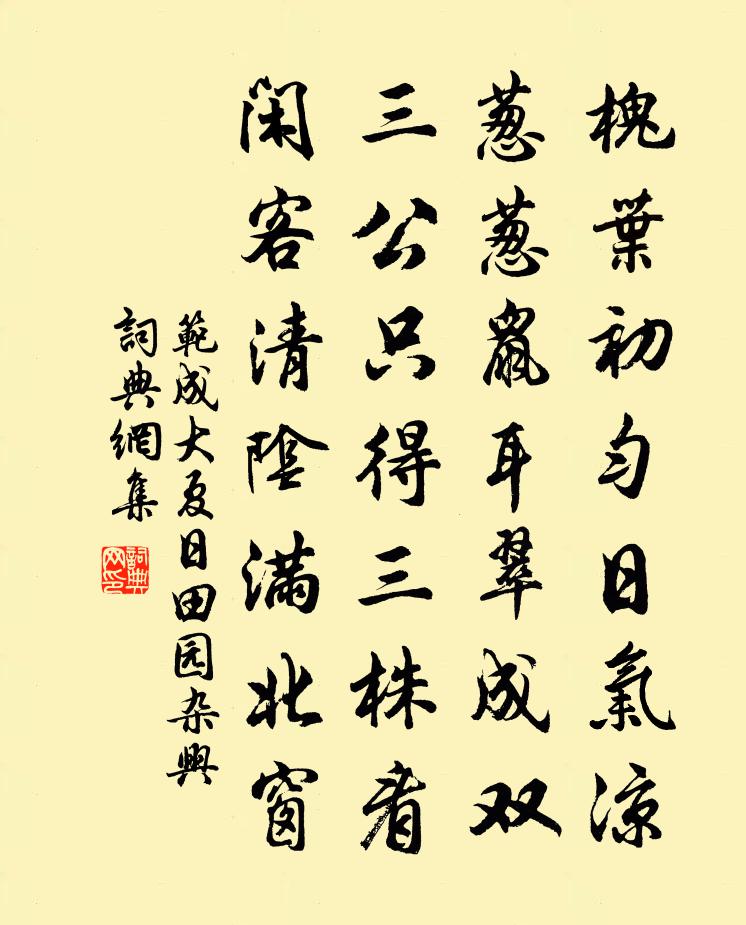 槐葉初匀日氣凉
葱葱鼠耳翠成双
三公只得三株看
闲客清陰滿北窗
範成大夏日田园杂興
詞典網集
詞典網印